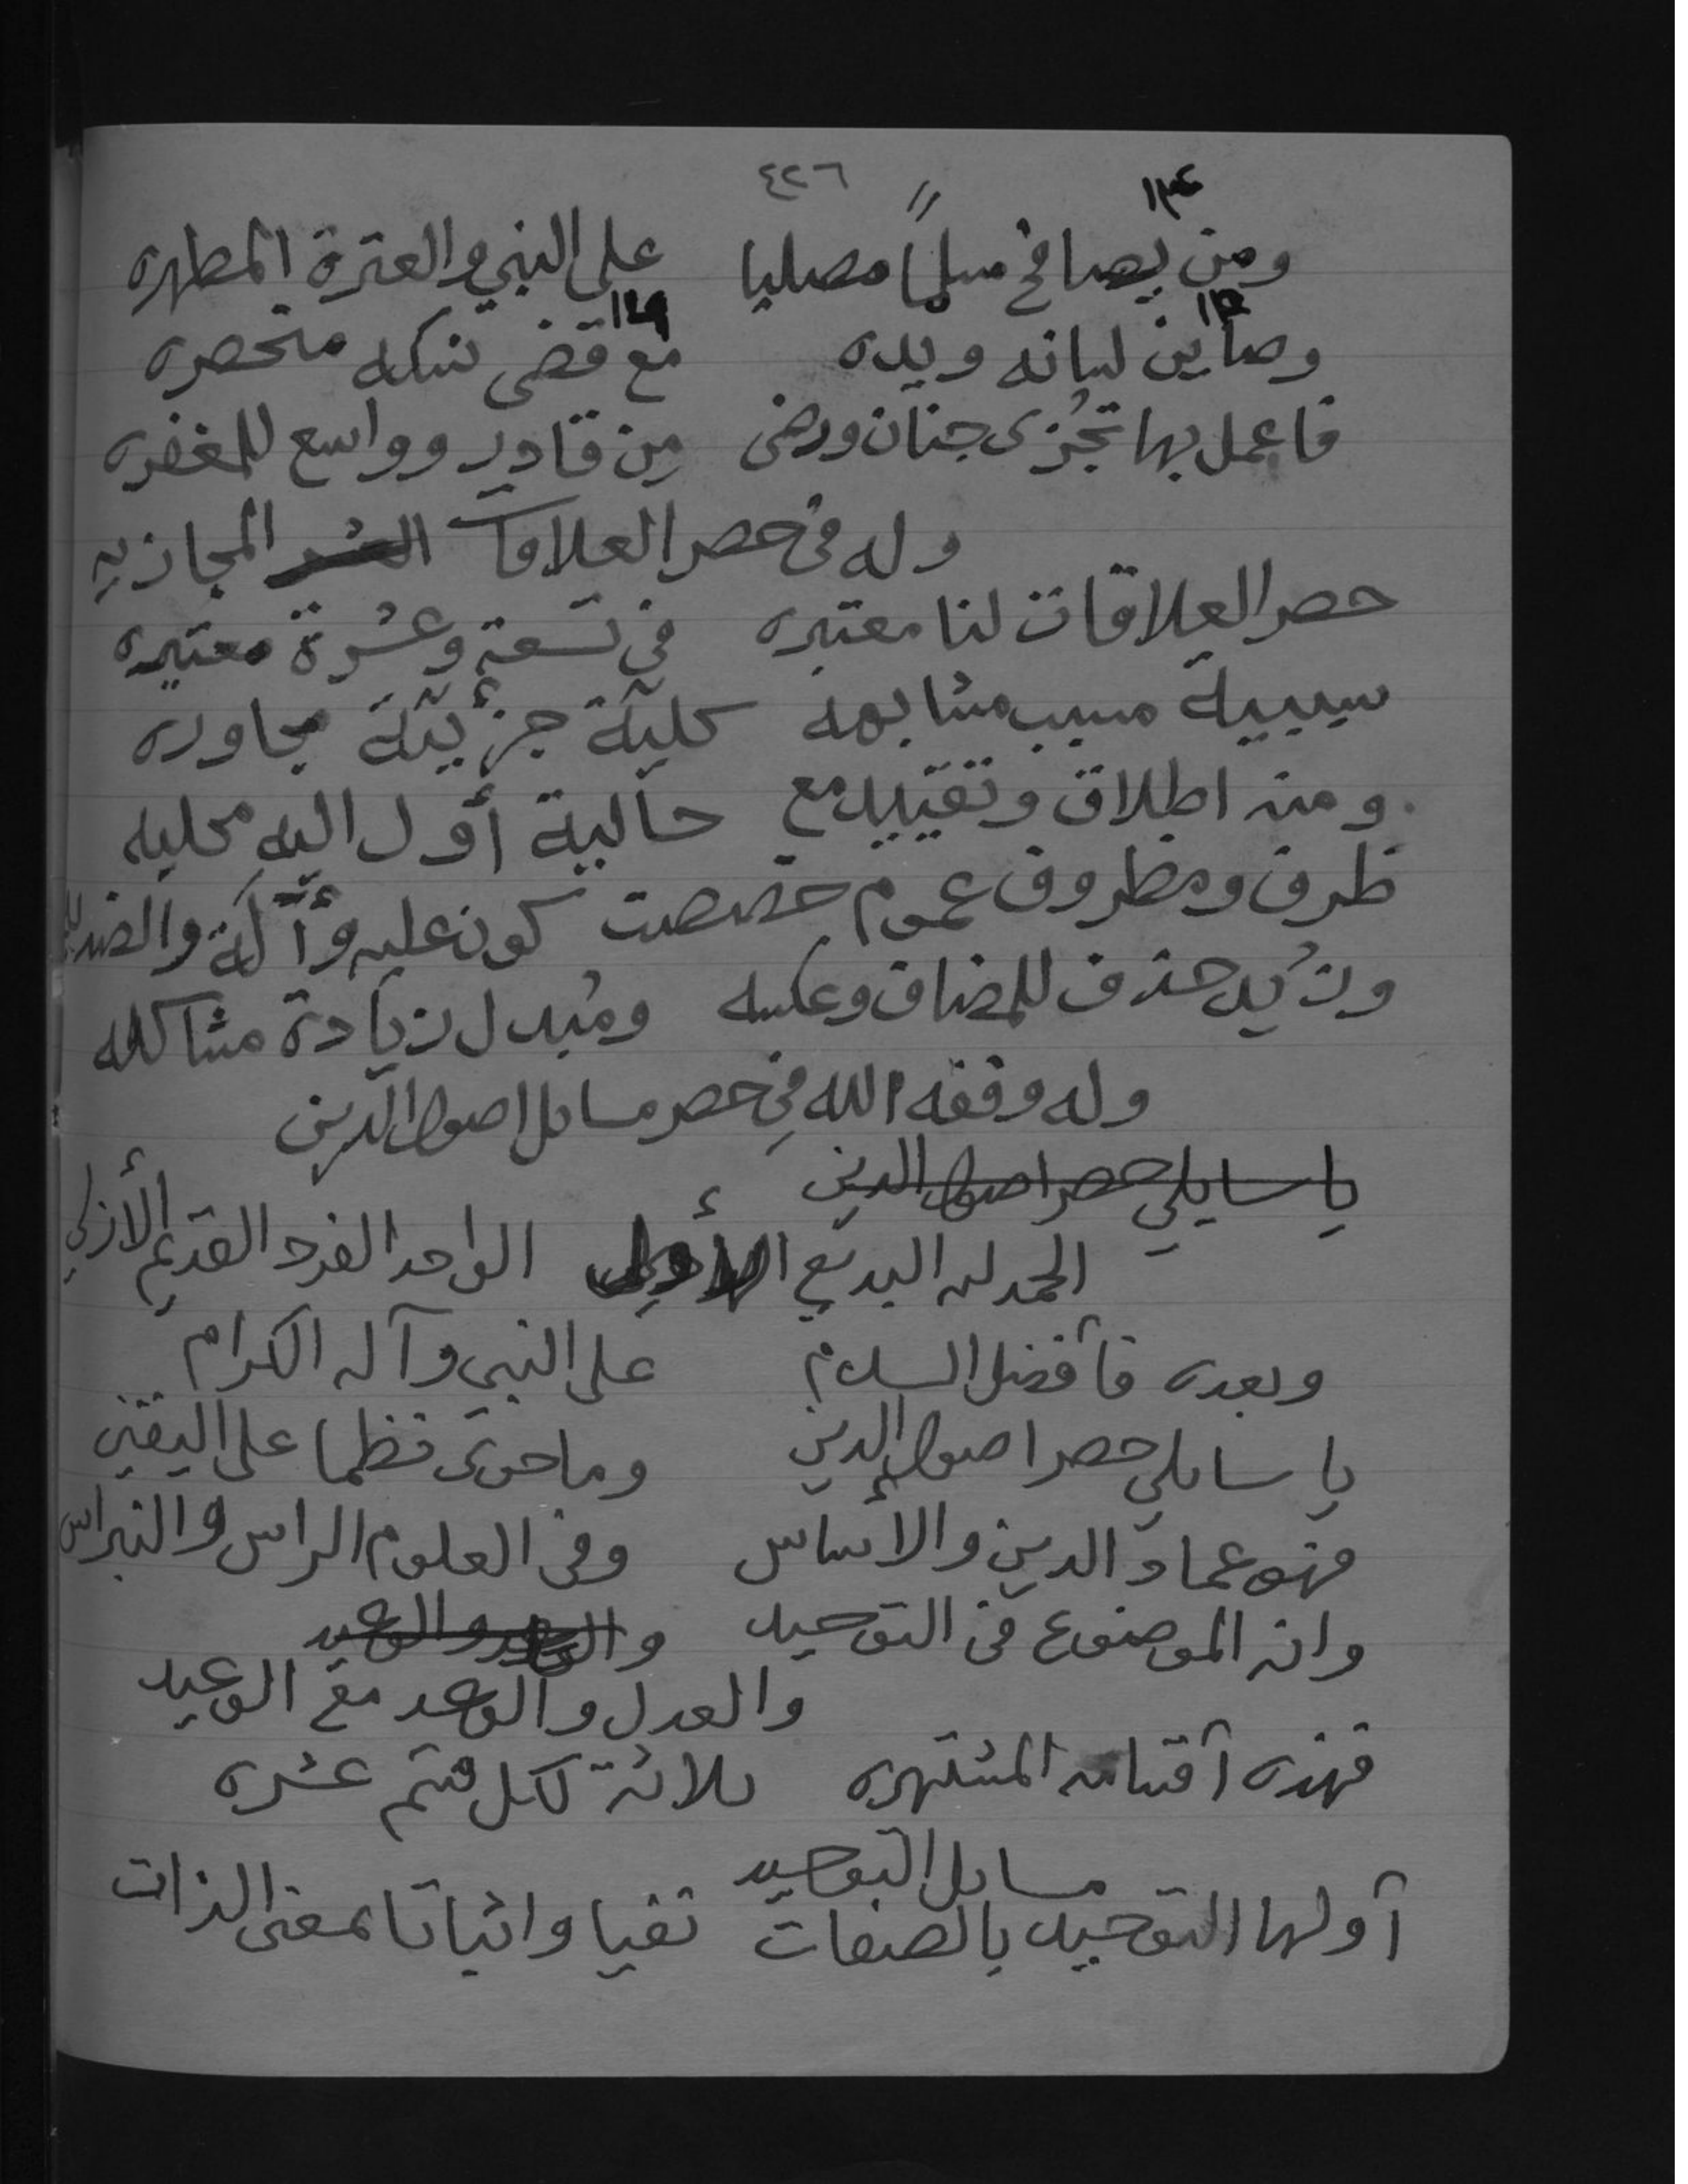 ٤٢٦
ومن يصافح مسلماً مصليا على النبي والعترة المطهره
وصاين لسانه ويده مع قضى نسكه منحصره
فاعمل بها تجُزى جنان ورضى مِن قادر وواسع للمغفره
وله في حصر العلاقات المجازيه
حصر العلاقات لنا معتبره في تسعة وعشرة معتبره
سببية مسبب مشابهه كليّة جزئيّة مجاوره
ومنه اطلاق وتقييد مع حالية أول اليه محليه
ظرف ومظروف عموم خصصت كون عليه وآلة والضد
وزُيد حذف للمضاف وعكسه ومُبدل زيادة مشاكله
وله وفقه الله في حصر مسائل اصول الدين
يا سايلي حصر اصول الدين
الحمد لله البديع الأولي الواحد الفرد القديم الأزلي
وبعده فأفضل السلام على النبي وآله الكرام
يا سائلي حصر اصول الدين وما حوى نظما على اليقين
فهو عماد الدين والأساس وفي العلوم الراس والنبراس
وانه الموضوع في التوحيد والوعد والوعيد
والعدل والوعد مع الوعيد
فهذه أقسامه المشتهره ثلاثة لكل قسم عشره
مسايل التوحيد
أولها التوحيد بالصفات نفيا واثباتا بمعنى الذات